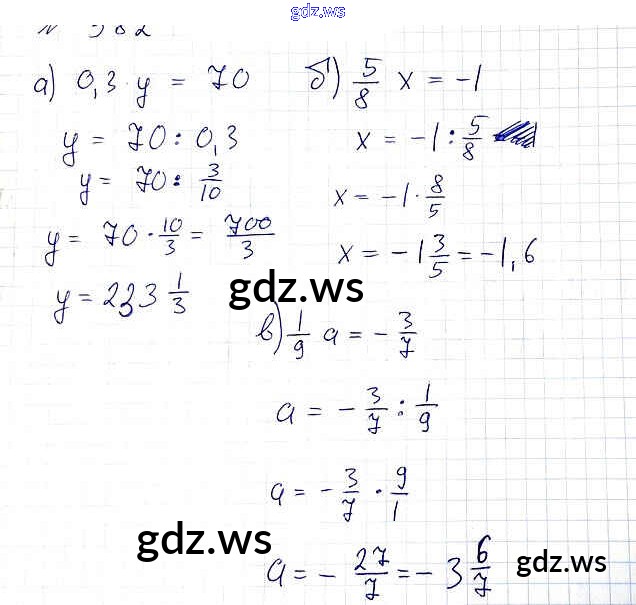 gdz.ws
а) 0,3 y = 70
y = 70 : 0,3
y = 70 : 3/10
y = 70 · 10/3 = 700/3
y = 233 1/3
б) 5/8 x = -1
x = -1 : 5/8
x = -1 · 8/5
x = -1 3/5 = -1,6
gdz.ws
в) 1/9 a = - 3/7
a = - 3/7 : 1/9
a = - 3/7 · 9/1
a = - 27/7 = - 3 6/7
gdz.ws
gdz.ws